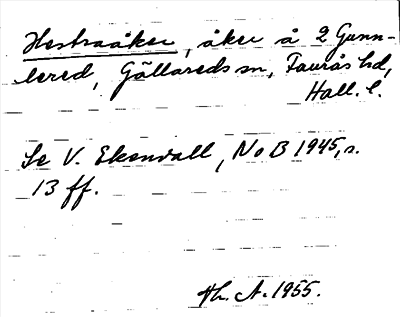 Hestraåker, åker å 2 Gunn-
lered, Gällareds sn, Faurås hd,
Hall. l.
Se V. Ekenvall, NoB 1945, s.
13 ff.
Th. A. 1955.